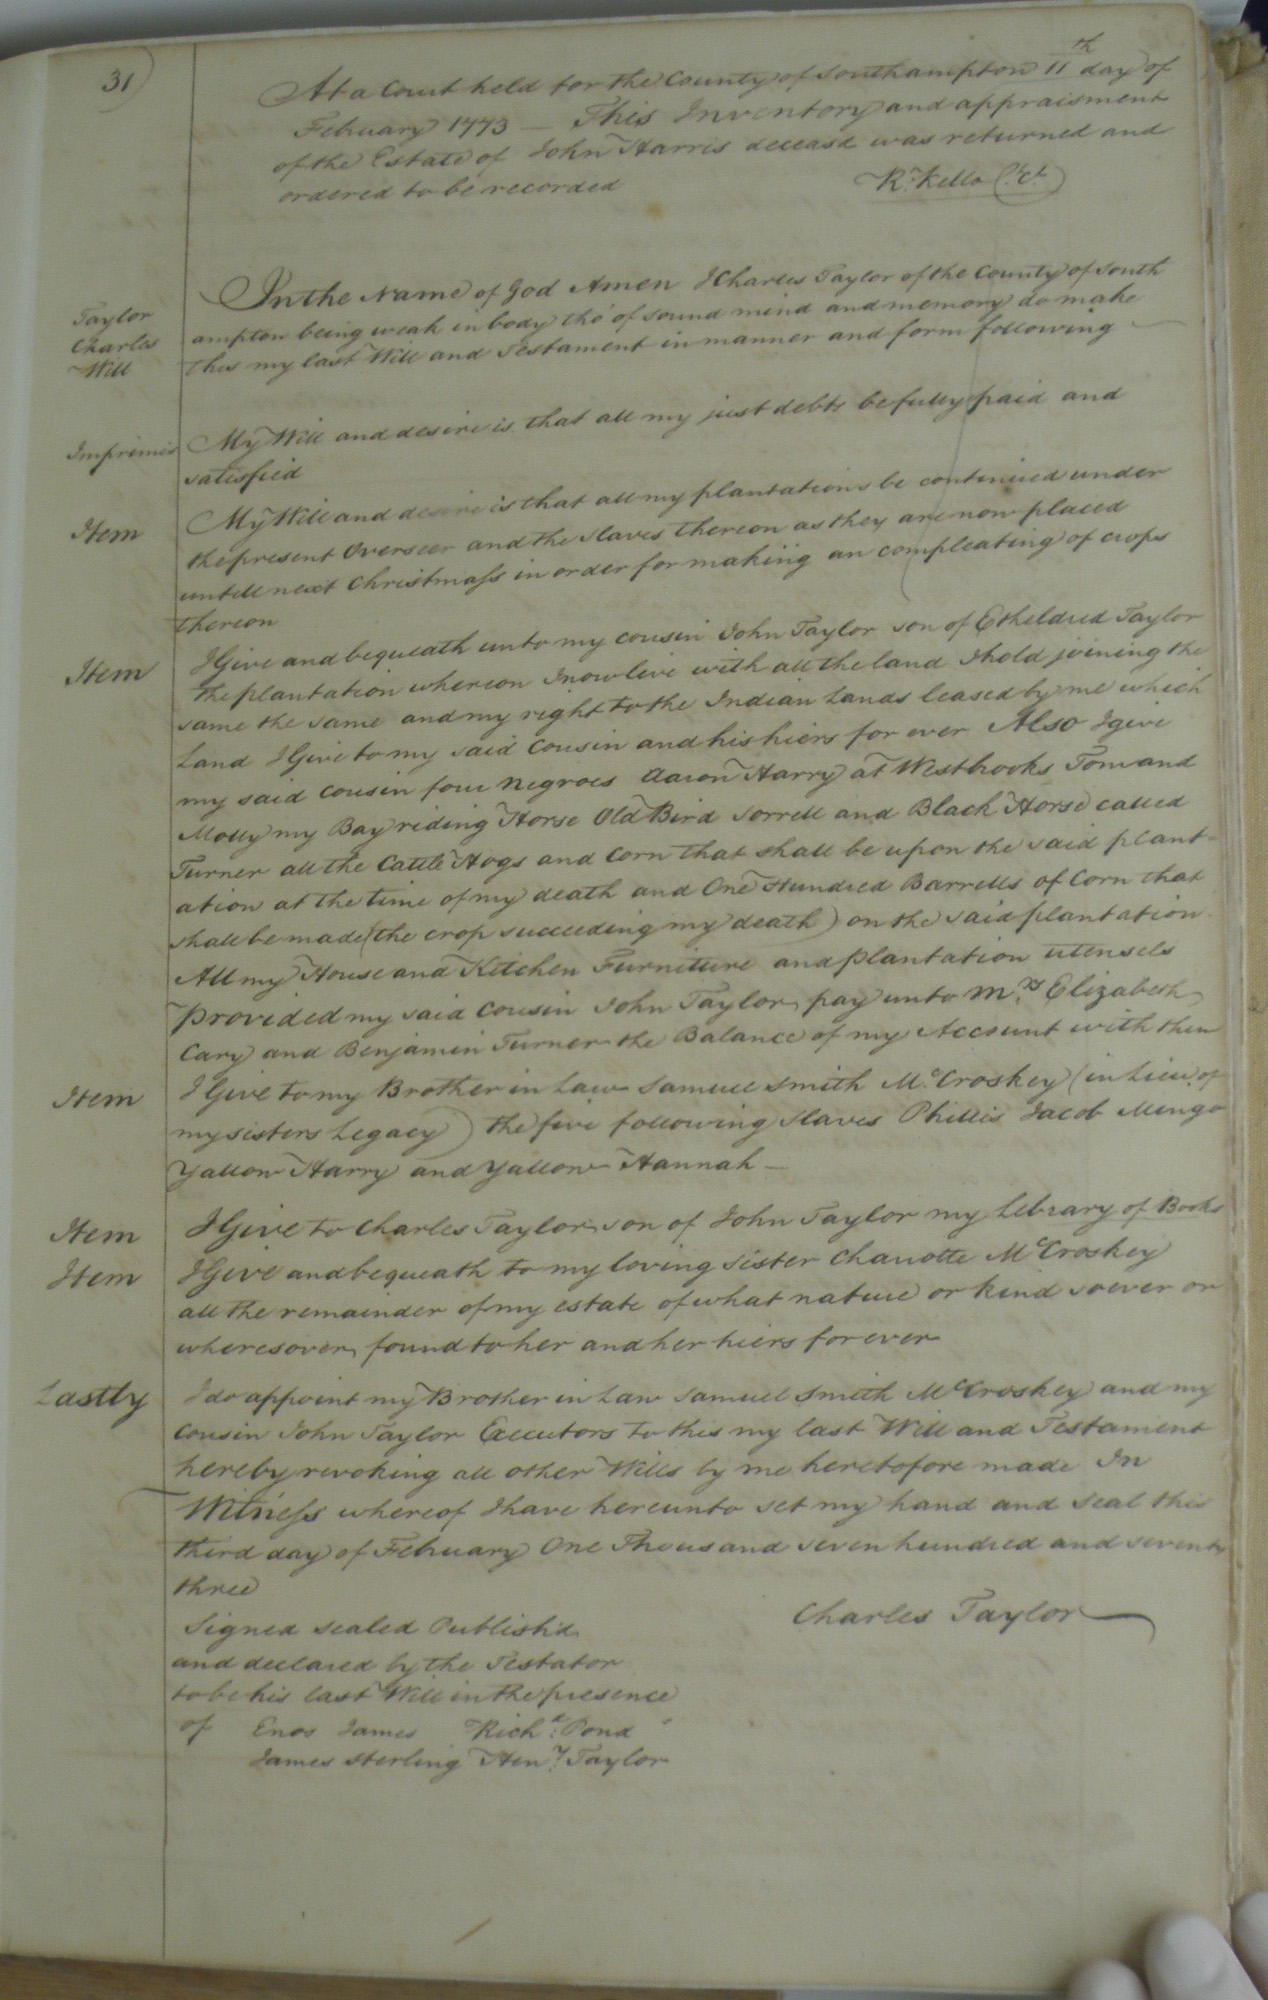 31
At a Court held for the County of Southampton 11th day of
February 1773 — This Inventory and appraisment
of the Estate of John Harris deceasd was returned and
ordered to be recorded
Rd. Kello Cl. Ct.
Taylor
Charles
Will
In the Name of God Amen I Charles Taylor of the County of South
ampton being weak in body tho' of sound mind and memory do make
this my last Will and Testament in manner and form following —
Imprimis My Will and desire is that all my just debts be fully paid and
satisfied
Item My Will and desire is that all my plantations be continued under
the present Overseer and the slaves thereon as they are now placed
untill next Christmass in order for making an compleating of crops
thereon
Item I Give and bequeath unto my cousin John Taylor son of Etheldred Taylor
the plantation whereon I now live with all the land I hold joining the
same the same and my right to the Indian Lands leased by me which
Land I Give to my said Cousin and his hiers for ever Also I give
my said cousin four Negroes Aaron Harry at Westbrooks Tom and
Molly my Bay riding Horse Old Bird Sorrell and Black Horse called
Turner all the Cattle Hogs and Corn that shall be upon the said plant-
ation at the time of my death and One Hundred Barrells of Corn that
shall be made (the crop succeeding my death) on the said plantation
All my House and Kitchen Furniture and plantation utensels
Provided my said cousin John Taylor pay unto Mrs. Elizabeth
Cary and Benjamin Turner the Balance of my Account with them
Item I Give to my Brother in Law Samuel Smith McCroskey (in Lieu of
my sisters Legacy) the five following Slaves Phillis Jacob Mingo
Yallow Harry and Yallow Hannah —
Item I Give to Charles Taylor son of John Taylor my Library of Books
Item I Give and bequeath to my loving Sister Charlotte McCroskey
all the remainder of my estate of what nature or kind soever or
wheresover found to her and her hiers for ever
Lastly I do appoint my Brother in Law Samuel Smith McCroskey and my
Cousin John Taylor Executors to this my last Will and Testament
hereby revoking all other Wills by me heretofore made In
Witness whereof I have hereunto set my hand and Seal this
third day of February One Thousand seven hundred and seventy
three
Charles Taylor
Signed sealed Publish'd
and declared by the Testator
to be his last Will in the presence
of Enos James Richd. Pond
James Sterling Heny. Taylor